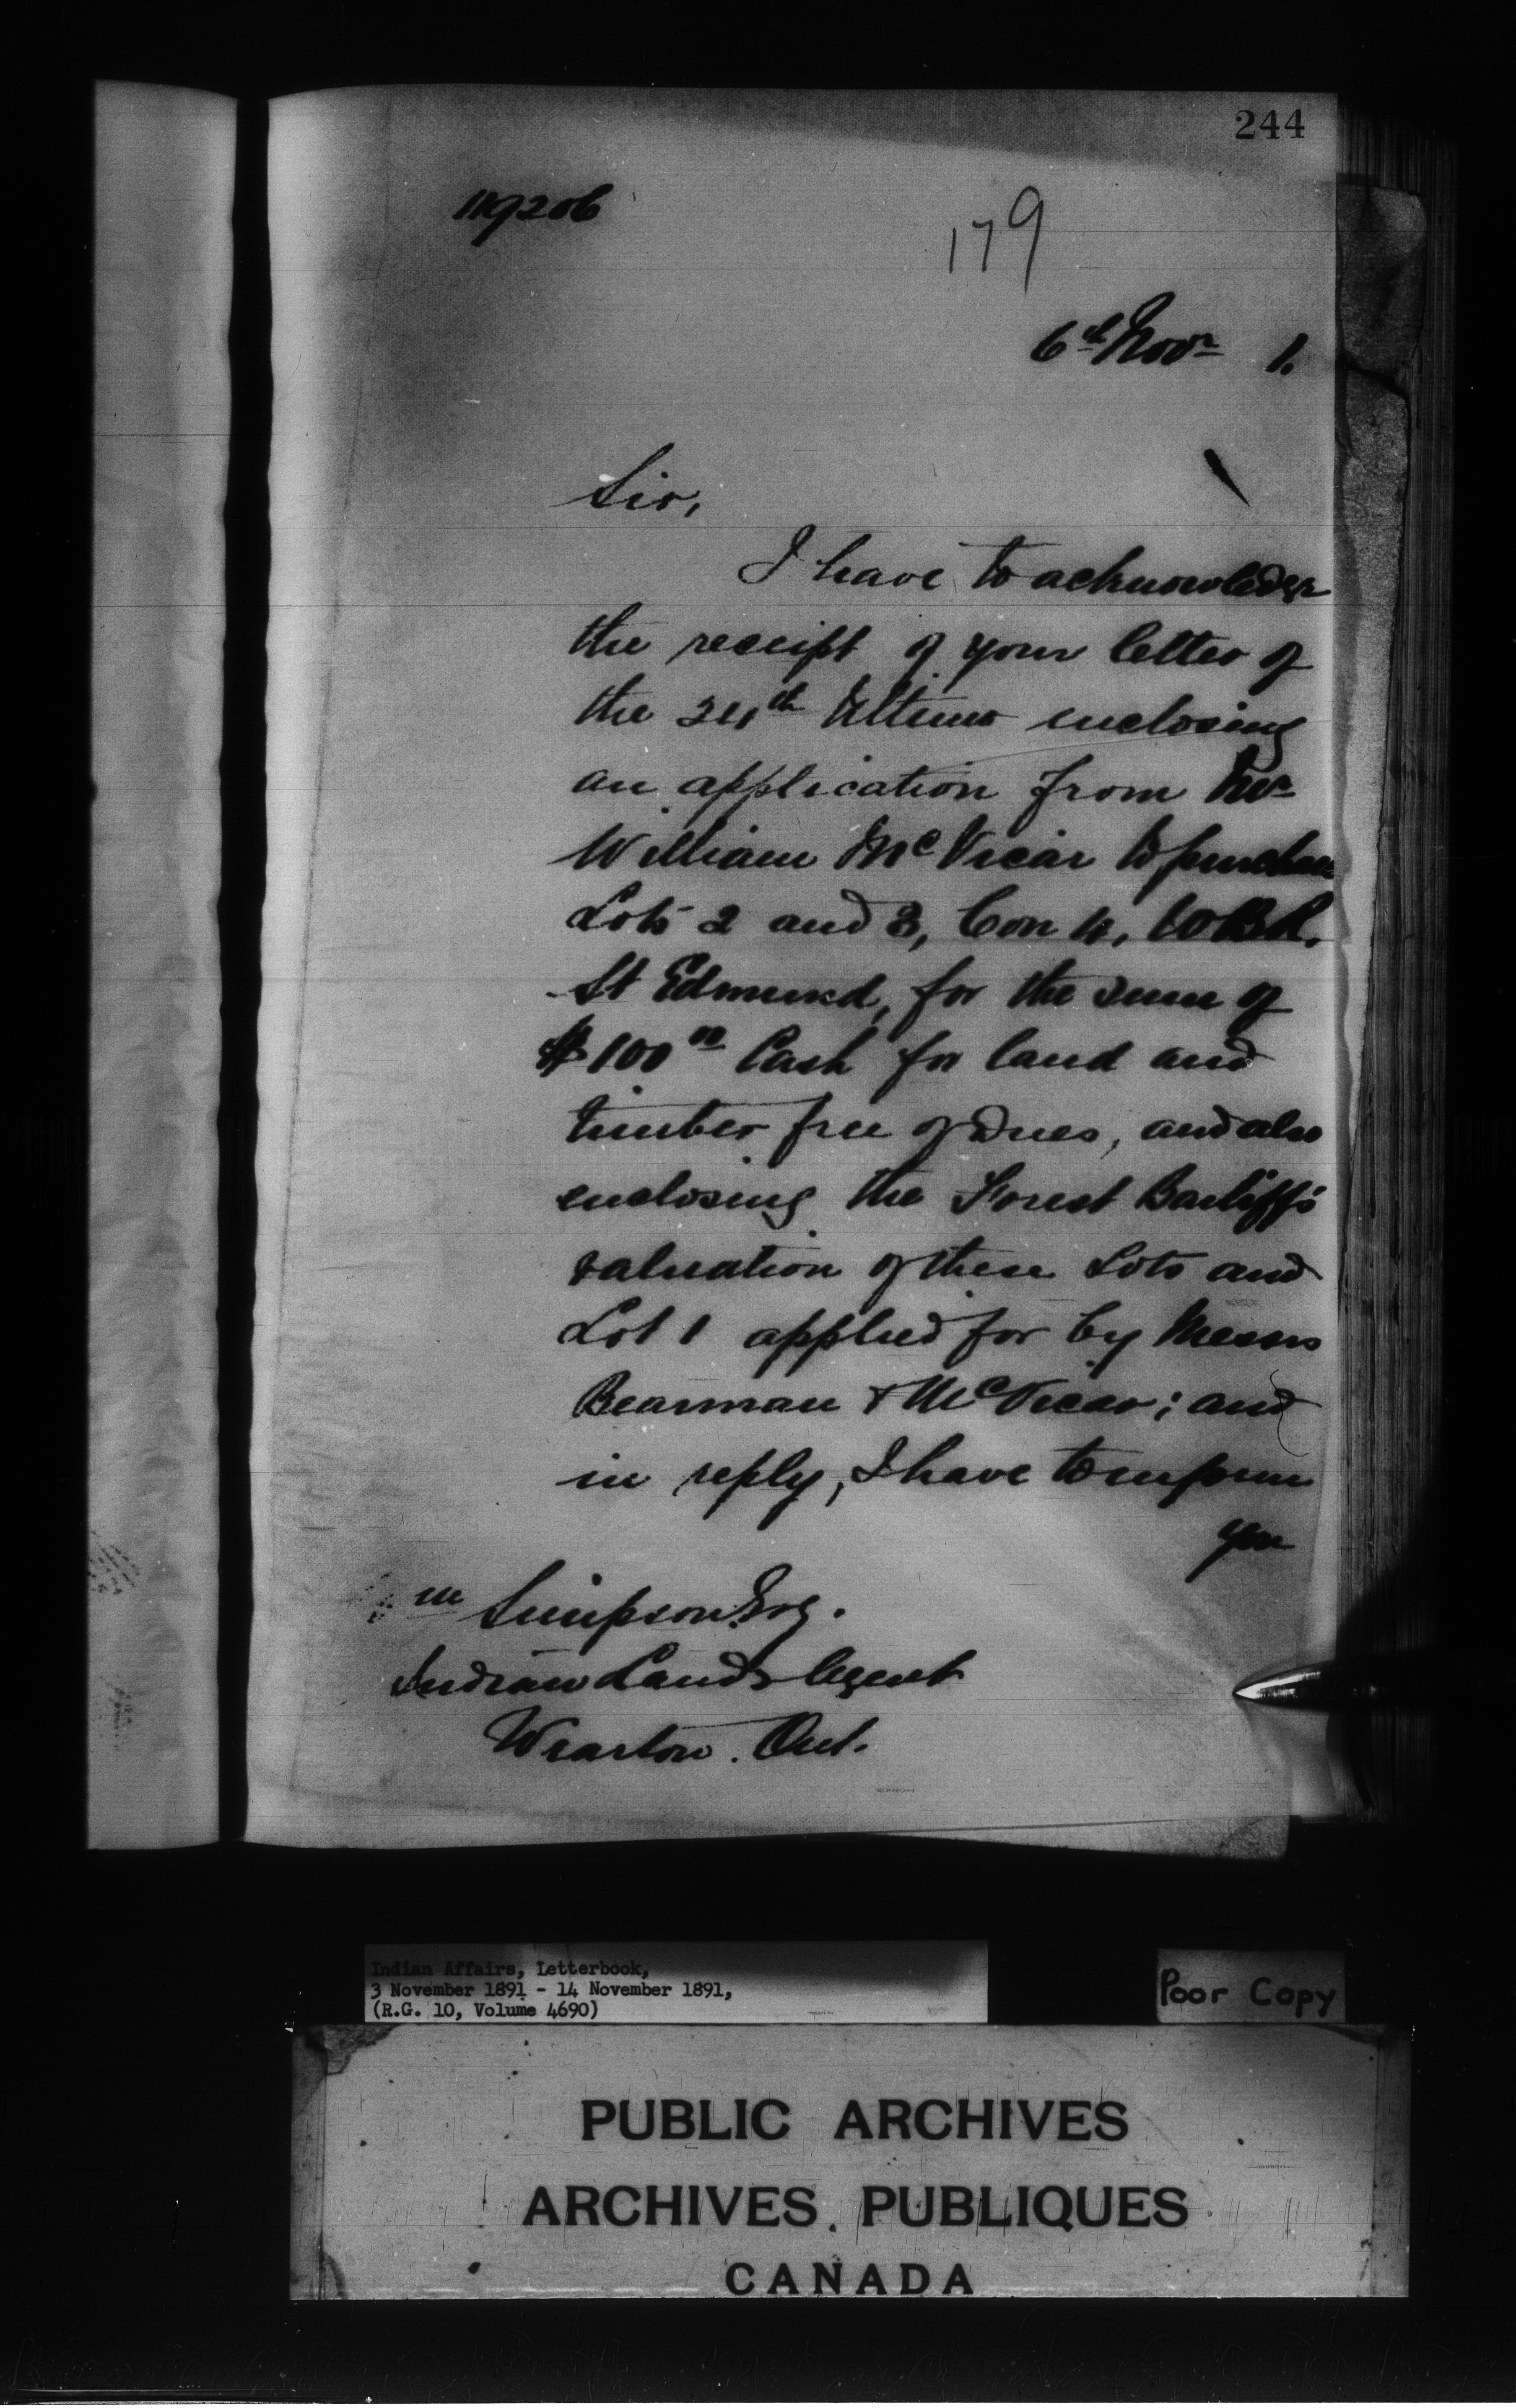 244
119206
179
6th Novr 1.
Sir,
I have to acknowledge
the receipt of your letter of
the 24th Ultimo enclosing
an application from Mr
William McVicar to purchase
Lots 2 and 3, Con 4, W.B.R.
St Edmund, for the sum of
$100 00 Cash for land and
timber free of dues, and also
enclosing the Forest Bailiff's
valuation of these Lots and
Lot 1 applied for by Messrs
Bearman & McVicar; and
in reply, I have to inform
you
Wm Simpson Esq.
Indian Lands Agent
Wiarton. Ont.
Indian Affairs, Letterbook,
3 November 1891 - 14 November 1891,
(R.G. 10, Volume 4690)
Poor Copy
PUBLIC ARCHIVES
ARCHIVES PUBLIQUES
CANADA